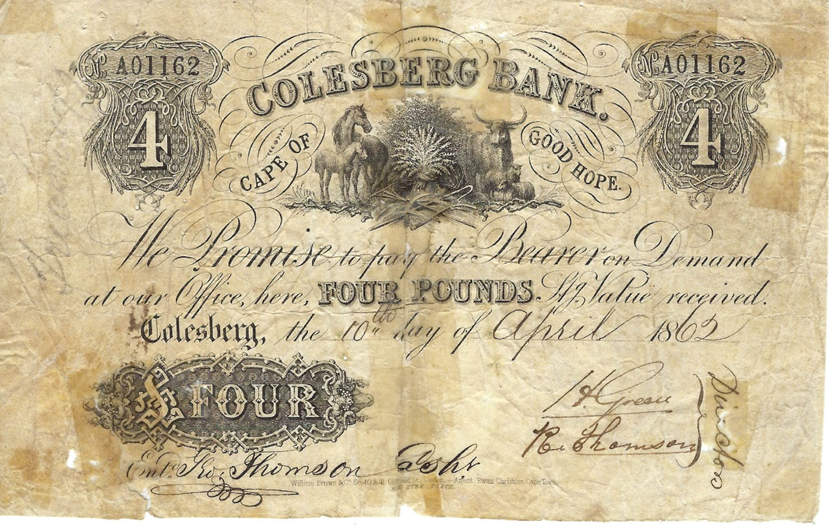 Nº A01162
Nº A01162
4
4
COLESBERG BANK.
CAPE OF GOOD HOPE.
We Promise to pay the Bearer on Demand
at our Office, here, FOUR POUNDS. Stg. Value received.
Colesberg, the 10th day of April 1862
£ FOUR
H. Green
R. Thomson
Directors
Entd. Thomson Cashr
William Brown & Co. London. Agent, Cape Town.